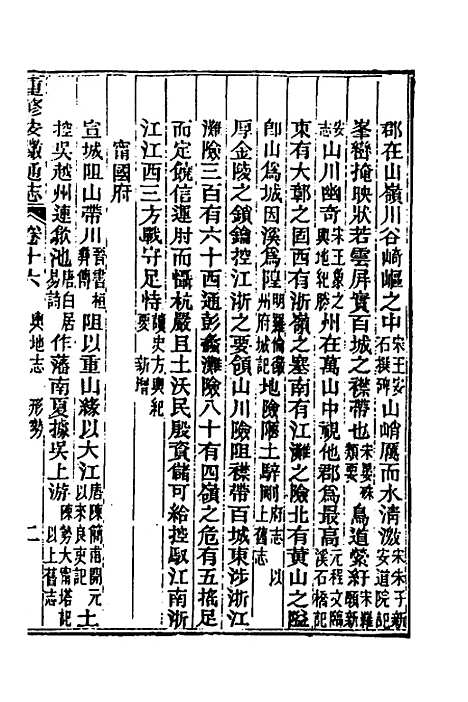 郡在山嶺川谷崎嶇之中宋王安石撰碑山峭厲而水清澈宋朱子新安道院記
峯巒掩映狀若雲屏實百城之襟帶也宋晏殊類要鳥道縈紆宋羅願新
安志山川幽奇宋王象之輿地紀勝州在萬山中視他郡爲最高元程文臨溪石橋記
東有大鄣之固西有浙嶺之塞南有江灘之險北有黃山之隘
卽山爲城因溪爲隍明羅倫徽州府城記地險隘土騂剛府志以上舊志
厚金陵之鎖鑰控江浙之要領山川險阻襟帶百城東涉浙江
灘險三百有六十西通彭蠡灘險八十有四嶺之危有五搖足
而定饒信運肘而懾杭嚴且土沃民殷資儲可給控馭江南浙
江江西三方戰守足恃讀史方輿紀要新增
甯國府
宣城阻山帶川晉書桓彝傳阻以重山緣以大江唐陳簡甫開元以來良吏記土
控吳越州連歙池唐白居易詩作藩南夏據吳上游陳勢大甯塔記以上舊志
重修安徽通志 卷十六 輿地志 形勢 二